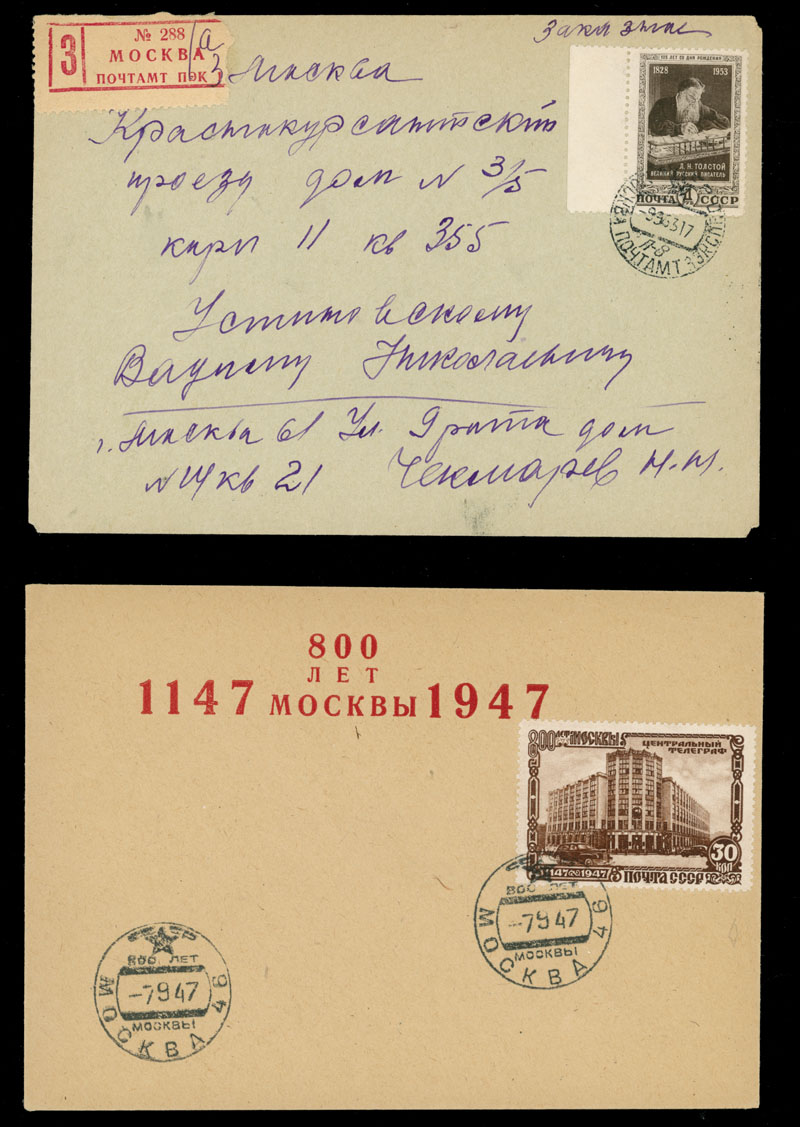 Заказное
№ 288/а
З МОСКВА 3
ПОЧТАМТ ПЭК
Москва
Краснокурсантский
проезд дом N 3/5
корп 11 кв 355
Устиновскому
Вадиму Николаевичу
г. Москва 61 Ул. дом
N кв 21 Чекмарев Н.Н.
125 ЛЕТ СО ДНЯ РОЖДЕНИЯ
1828 1953
Л.Н. ТОЛСТОЙ
ВЕЛИКИЙ РУССКИЙ ПИСАТЕЛЬ
ПОЧТА СССР
МОСКВА ПОЧТАМТ
800
ЛЕТ
1147 МОСКВЫ 1947
800 ЛЕТ МОСКВЫ
ЦЕНТРАЛЬНЫЙ
ТЕЛЕГРАФ
30
КОП
1147 1947 ПОЧТА СССР
СССР
800 ЛЕТ
-7 9 47
МОСКВЫ
МОСКВА 46
СССР
800 ЛЕТ
-7 9 47
МОСКВЫ
МОСКВА 46